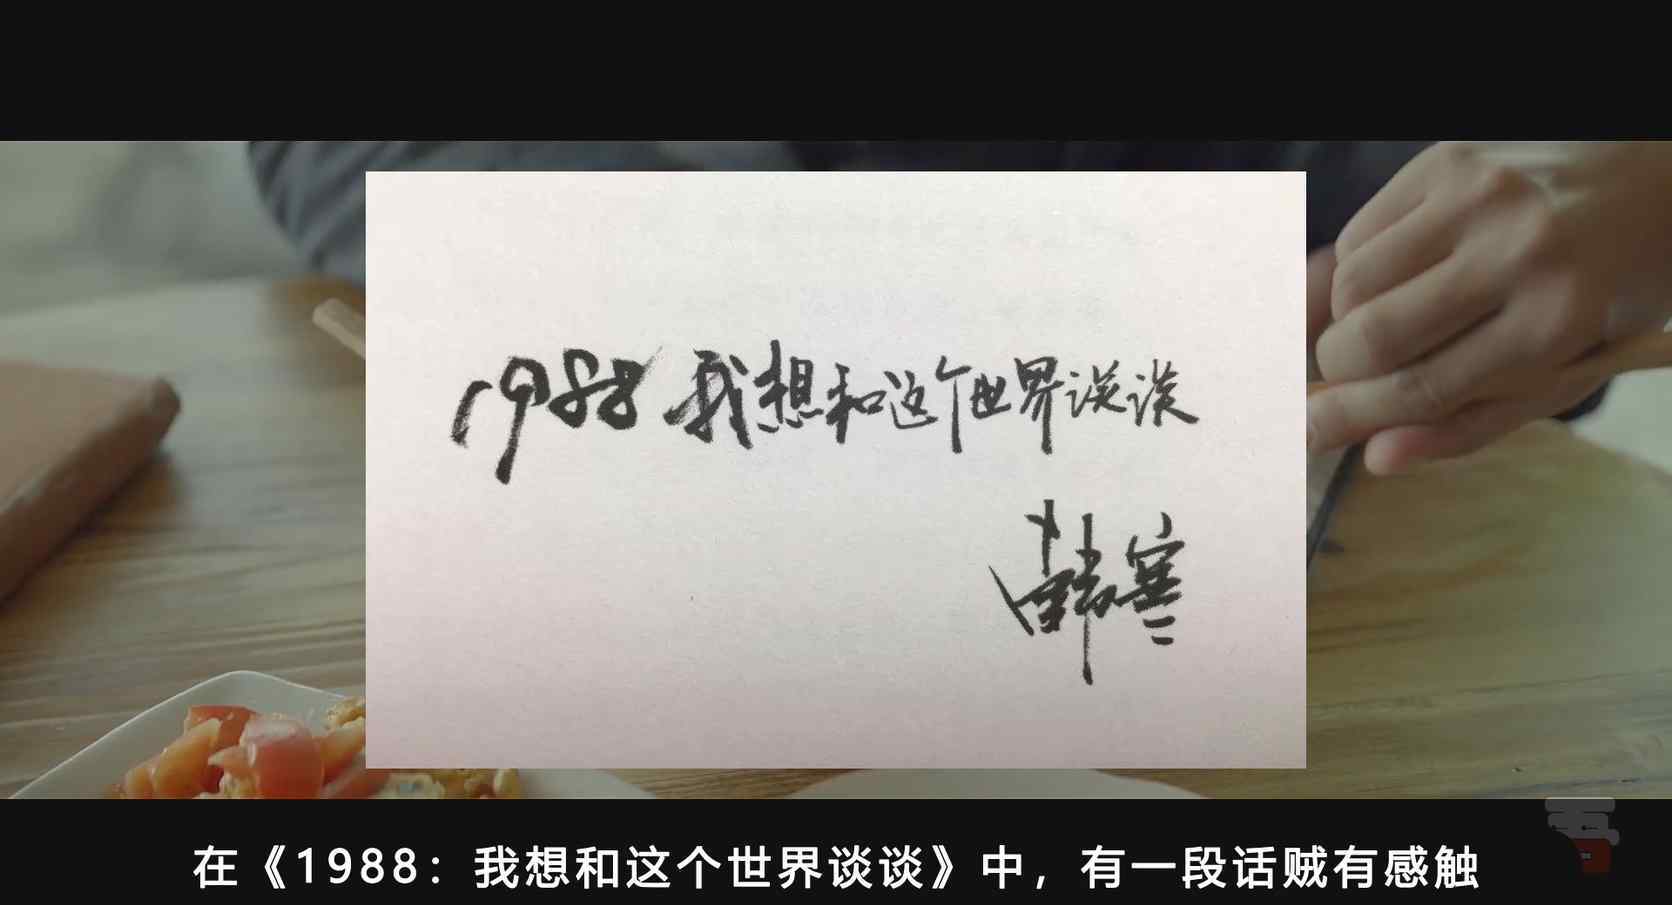 1988 我想和这个世界谈谈
韩寒
在《1988：我想和这个世界谈谈》中，有一段话贼有感触